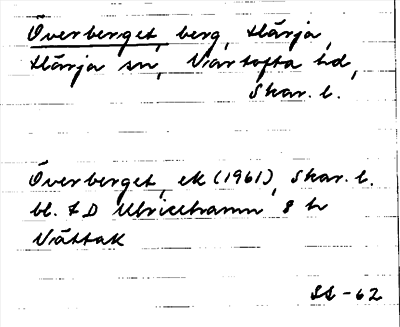 Överberget, berg, Härja,
Härja sn, Vartofta hd,
Skar. l.
Överberget, ek (1961), Skar. l.
bl. 7 D Ulricehamn 8 h
Vättak
SL-62